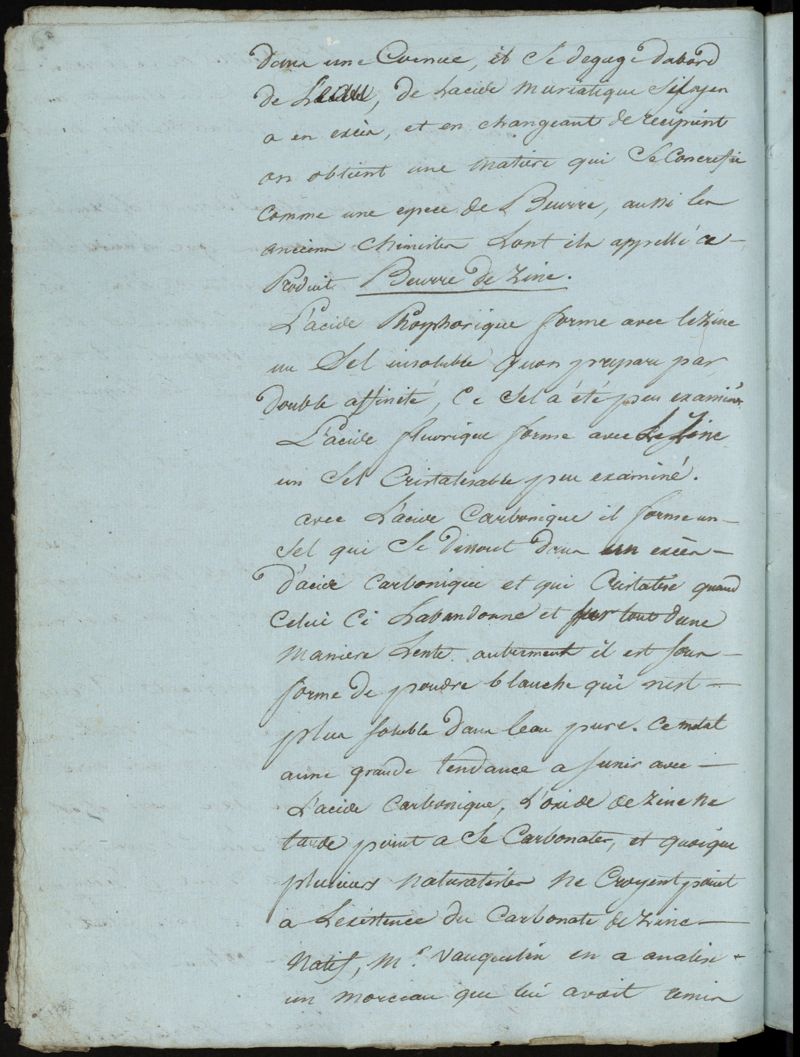 dans une Cornue, il se degage d'abord
de L'eau, de Lacide muriatique s'il y en
a en excès, et en changeant de recipient
on obtient une matiere qui se concrefie
comme une epece de Beurre, aussi les
anciens chimistes Lont ils appellé ce -
Produit Beurre de Zinc.
L'acide Phosphorique forme avec le Zinc
un Sel insoluble quon prepare par
double affinité, ce sel a été peu examiné
L'acide fluorique forme avec Le Zinc
un Sel Cristalisable peu examiné.
avec L'acide Carbonique il forme un -
Sel qui se dissout dans un excès -
D'acide Carbonique et qui Cristalise quand
celui ci Labandonne et sur tout dune
maniere Lente. autrement il est sous -
forme de poudre blanche qui n'est -
plus soluble dans leau pure. Ce metal
a une grande tendance a sunir avec -
L'acide Carbonique, L'oxide de Zinc ne
tarde point a se Carbonater, et quoique
plusieurs naturalistes ne croyent point
a L'existence du Carbonate de Zinc -
Natif, Mr. Vauquelin en a analisé
un morceau que lui avoit remis